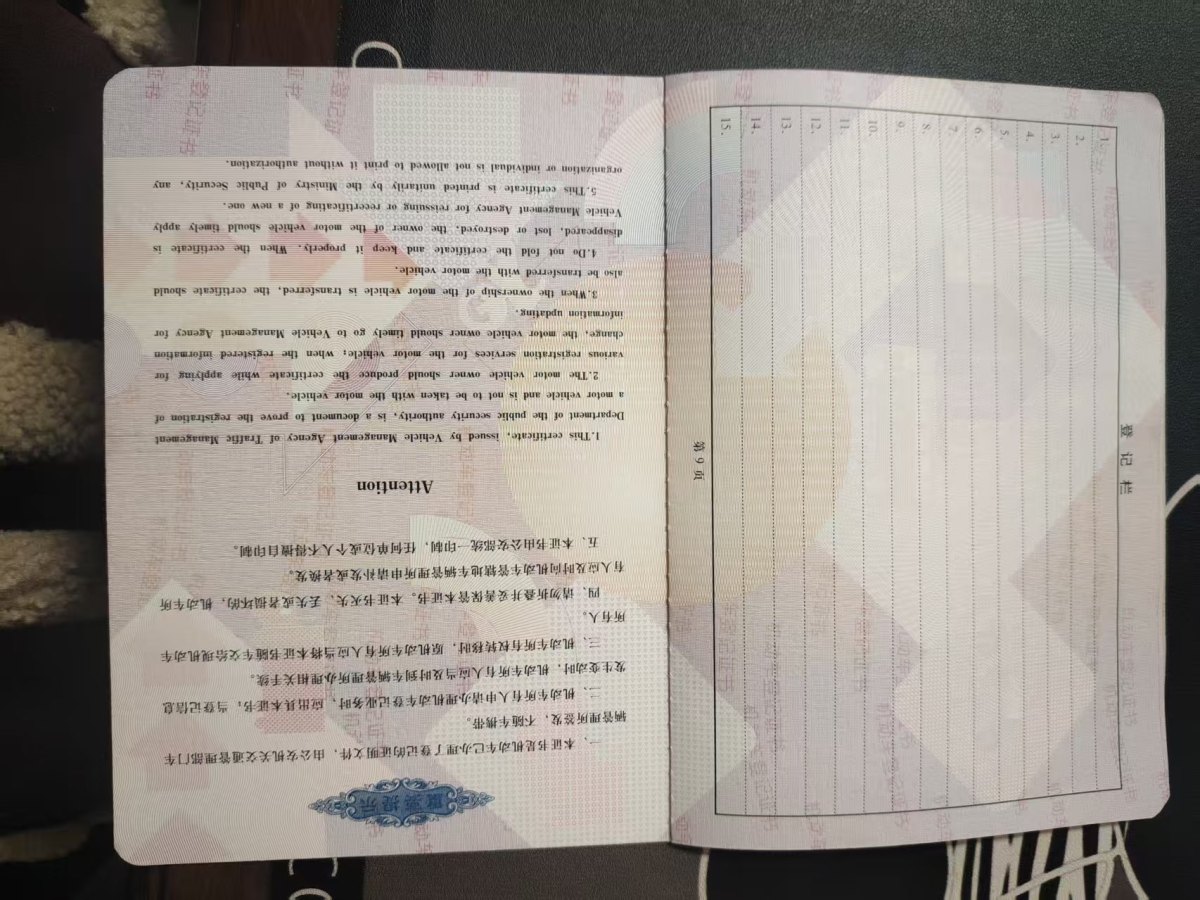 重要提示
一、本证书是机动车已办理了登记的证明文件，由公安机关交通管理部门车
辆管理所签发，不随车携带。
二、机动车所有人申请办理机动车登记业务时，应出具本证书；当登记信息
发生变动时，机动车所有人应当及时到车辆管理所办理相关手续。
三、机动车所有权转移时，原机动车所有人应当将本证书随车交给现机动车
所有人。
四、请勿折叠并妥善保管本证书。本证书灭失、丢失或者损坏的，机动车所
有人应及时向机动车管辖地车辆管理所申请补发或者换发。
五、本证书由公安部统一印制，任何单位或个人不得擅自印制。
Attention
1.This certificate, issued by Vehicle Management Agency of Traffic Management
Department of the public security authority, is a document to prove the registration of
a motor vehicle and is not to be taken with the motor vehicle.
2.The motor vehicle owner should produce the certificate while applying for
various registration services for the motor vehicle; when the registered information
change, the motor vehicle owner should timely go to Vehicle Management Agency for
information updating.
3.When the ownership of the motor vehicle is transferred, the certificate should
also be transferred with the motor vehicle.
4.Do not fold the certificate and keep it properly. When the certificate is
disappeared, lost or destroyed, the owner of the motor vehicle should timely apply
Vehicle Management Agency for reissuing or recertificating of a new one.
5.This certificate is printed unitarily by the Ministry of Public Security, any
organization or individual is not allowed to print it without authorization.
登记栏
1.
2.
3.
4.
5.
6.
7.
8.
9.
10.
11.
12.
13.
14.
15.
第9页